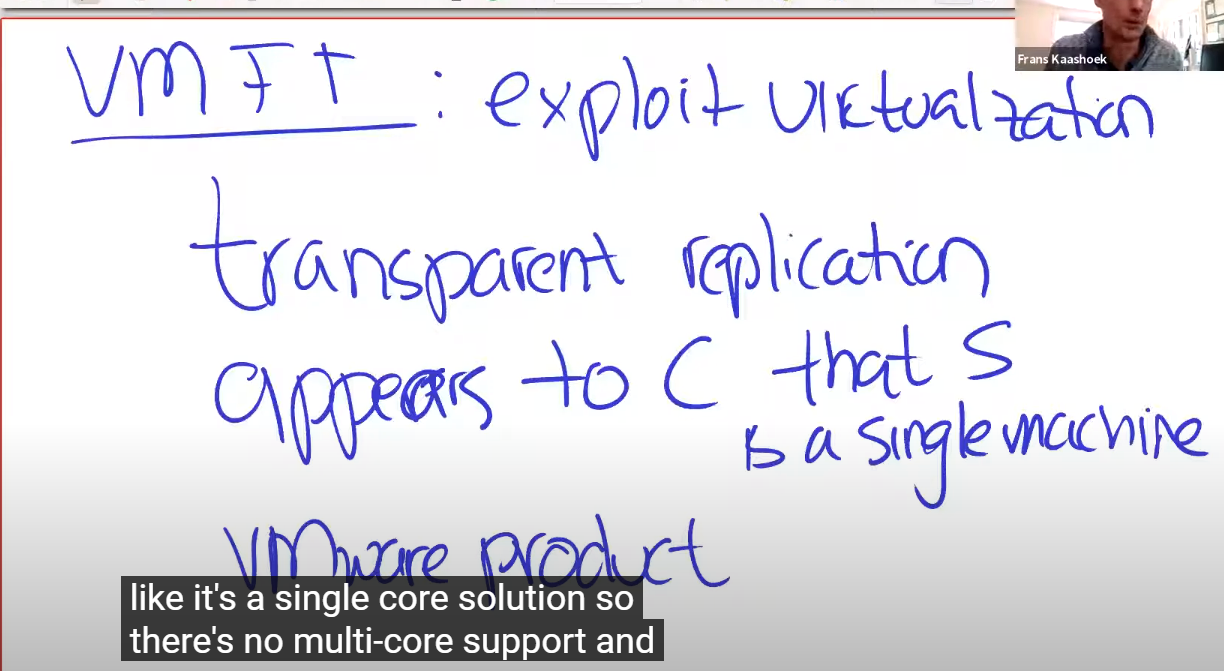 Frans Kaashoek
VM FT : exploit virtualzation
transparent replication
appears to C that S
is a single machine
VMware product
like it's a single core solution so
there's no multi-core support and